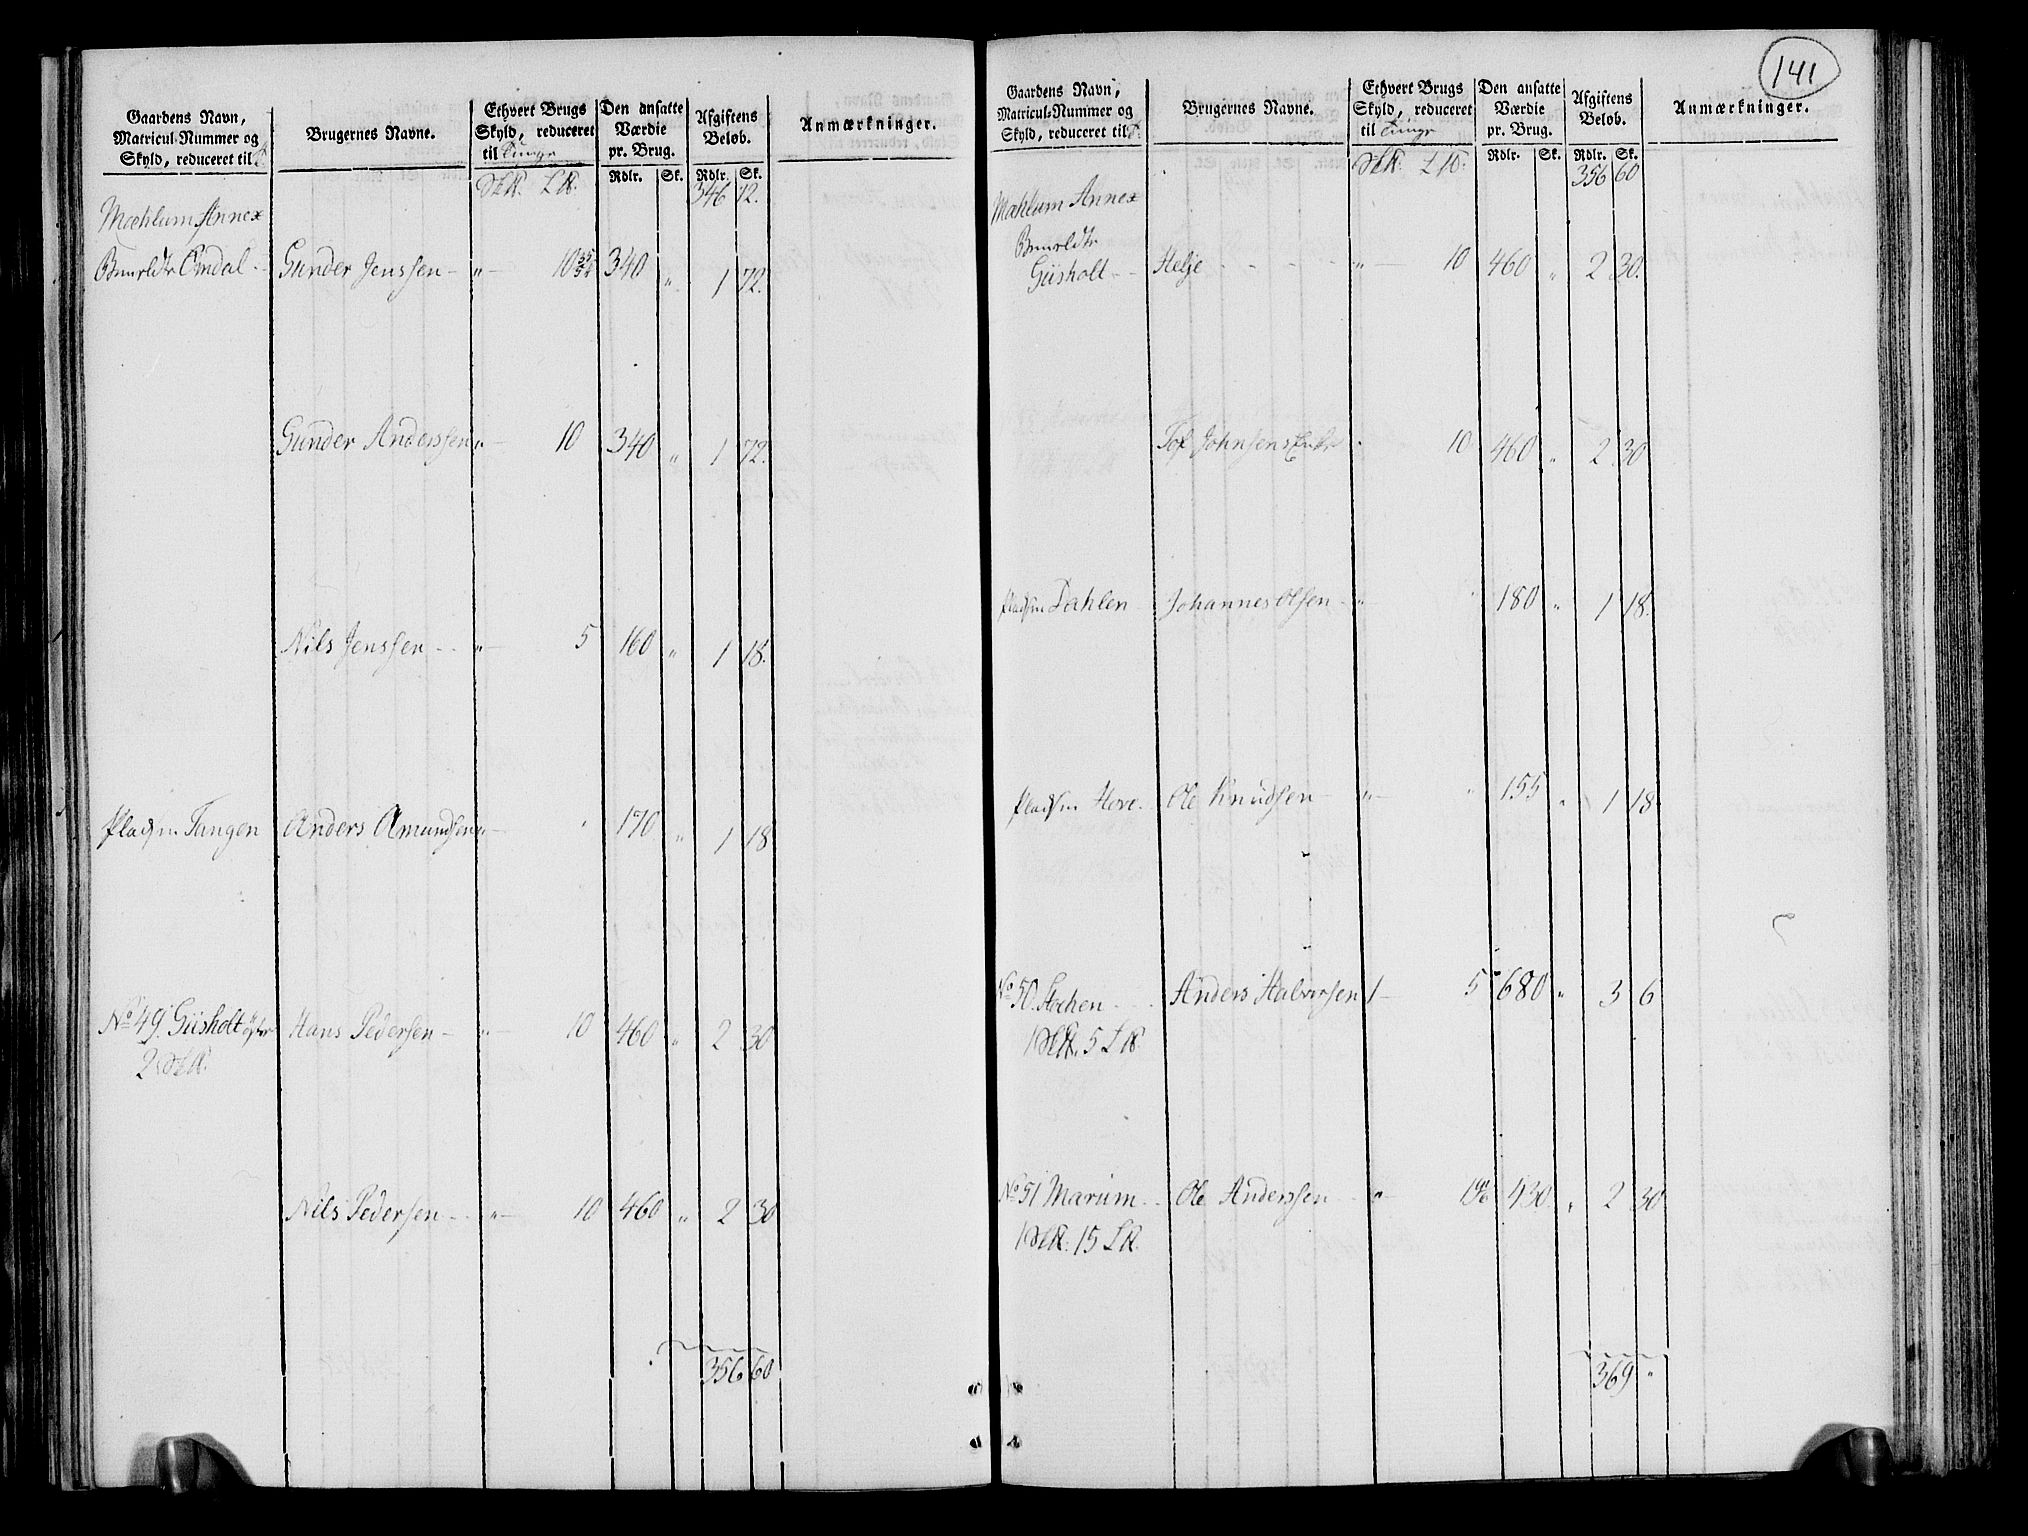 Gaardens Navn,
Matricul-Nummer og
Skyld, reduceret til
Brugernes Navne.
Ethvert Brugs
Skyld, reduceret
til Tunge
Den ansatte
Værdie
pr. Brug.
Afgiftens
Beløb.
Anmærkninger.
Rdlr. Sk. Rdlr. Sk.
346 72.
Mæhlum Annex
Omdal Gunder Jenssen 340 " 1 72.
Gunder Anderssen " 10 340 " 1 72.
Nils Jenssen " 5 160 " 1 18.
Pladsen Tangen Anders Amundsen " 170 " 1 18
No 49. Giisholt Hans Pedersen " 10 460 " 2 30
Nils Pedersen " 10 460 " 2 30
356 60
141
Gaardens Navn,
Matricul-Nummer og
Skyld, reduceret til
Brugernes Navne.
Ethvert Brugs
Skyld, reduceret
til Tunge
Den ansatte
Værdie
pr. Brug.
Afgiftens
Beløb.
Anmærkninger.
Rdlr. Sk. Rdlr. Sk.
356 60
Mæhlum Annex
Giisholt Helje " 10 460 " 2 30.
Johnsens Enke 10 460 " 2 30
Pladsen Dahlen Johannes Olsen " 180 " 1 18.
Pladsen Hove. Ole Knudsen " 155 " 1 18
No 50. Anders Halvorsen 1 5 680 " 3 6
No 51 Marum Ole Anderssen " 430 " 2 30
369 "